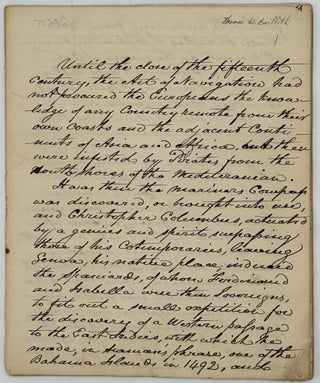 70236
4
1
Until the close of the fifteenth
Century, the Art of Navigation had
not procured the Europeans the know-
ledge of any Country remote from their
own Coasts and the adjacent Conti-
nents of Asia and Africa and they
were infested by Pirates from the
North Shores of the Mediteranian.
It was then the mariners Compass
was discovered, or brought into use,
and Christopher Columbus, actuated
by a genius and spirit surpassing
those of his Cotemporaries, leaving
Genoa, his native place induced
the Spaniards, of whom Ferdinand
and Isabella were then Sovereigns,
to fit out a small expetition for
the discovery of a Western passage
to the East Indies, with which he
made, in seamans phrase, one of the
Bahama Islands in 1492, and